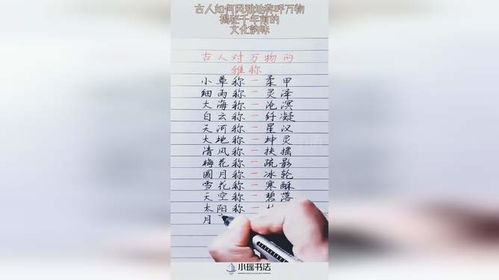 古人如何风雅地称呼万物
揭秘千年前的
文化韵味
古人对万物的
雅称
小草称－柔甲
细雨称－灵泽
大海称－沧溟
白云称－纤凝
天河称－星汉
大地称－坤灵
清风称－扶摇
梅花称－疏影
圆月称－冰轮
雪花称－寒酥
天空称－碧落
太阳称－
月
小瑶书法